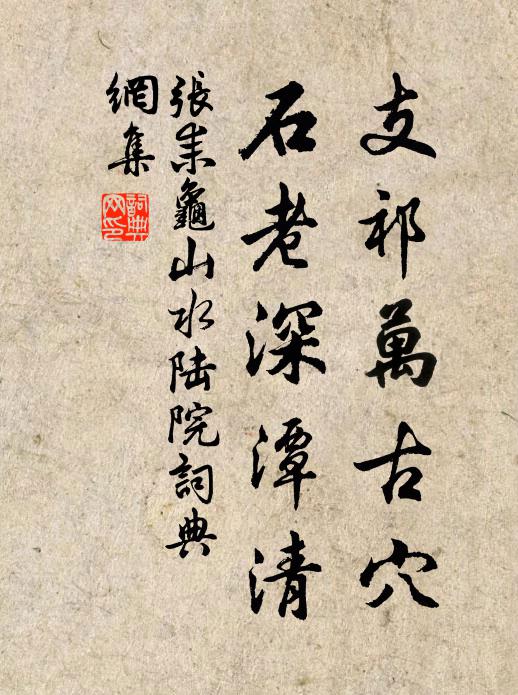 支祁萬古穴
石老深潭清
張耒龜山水陆院詞典
網集
詞典網印